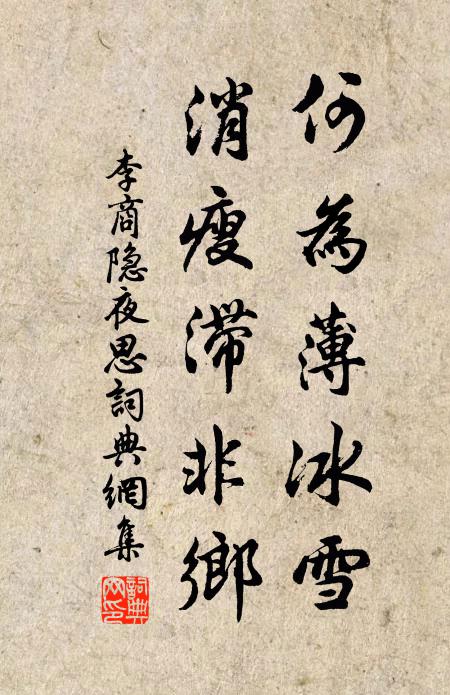 何為薄冰雪
消瘦滯非鄉
李商隐夜思詞典網集
詞典
网印